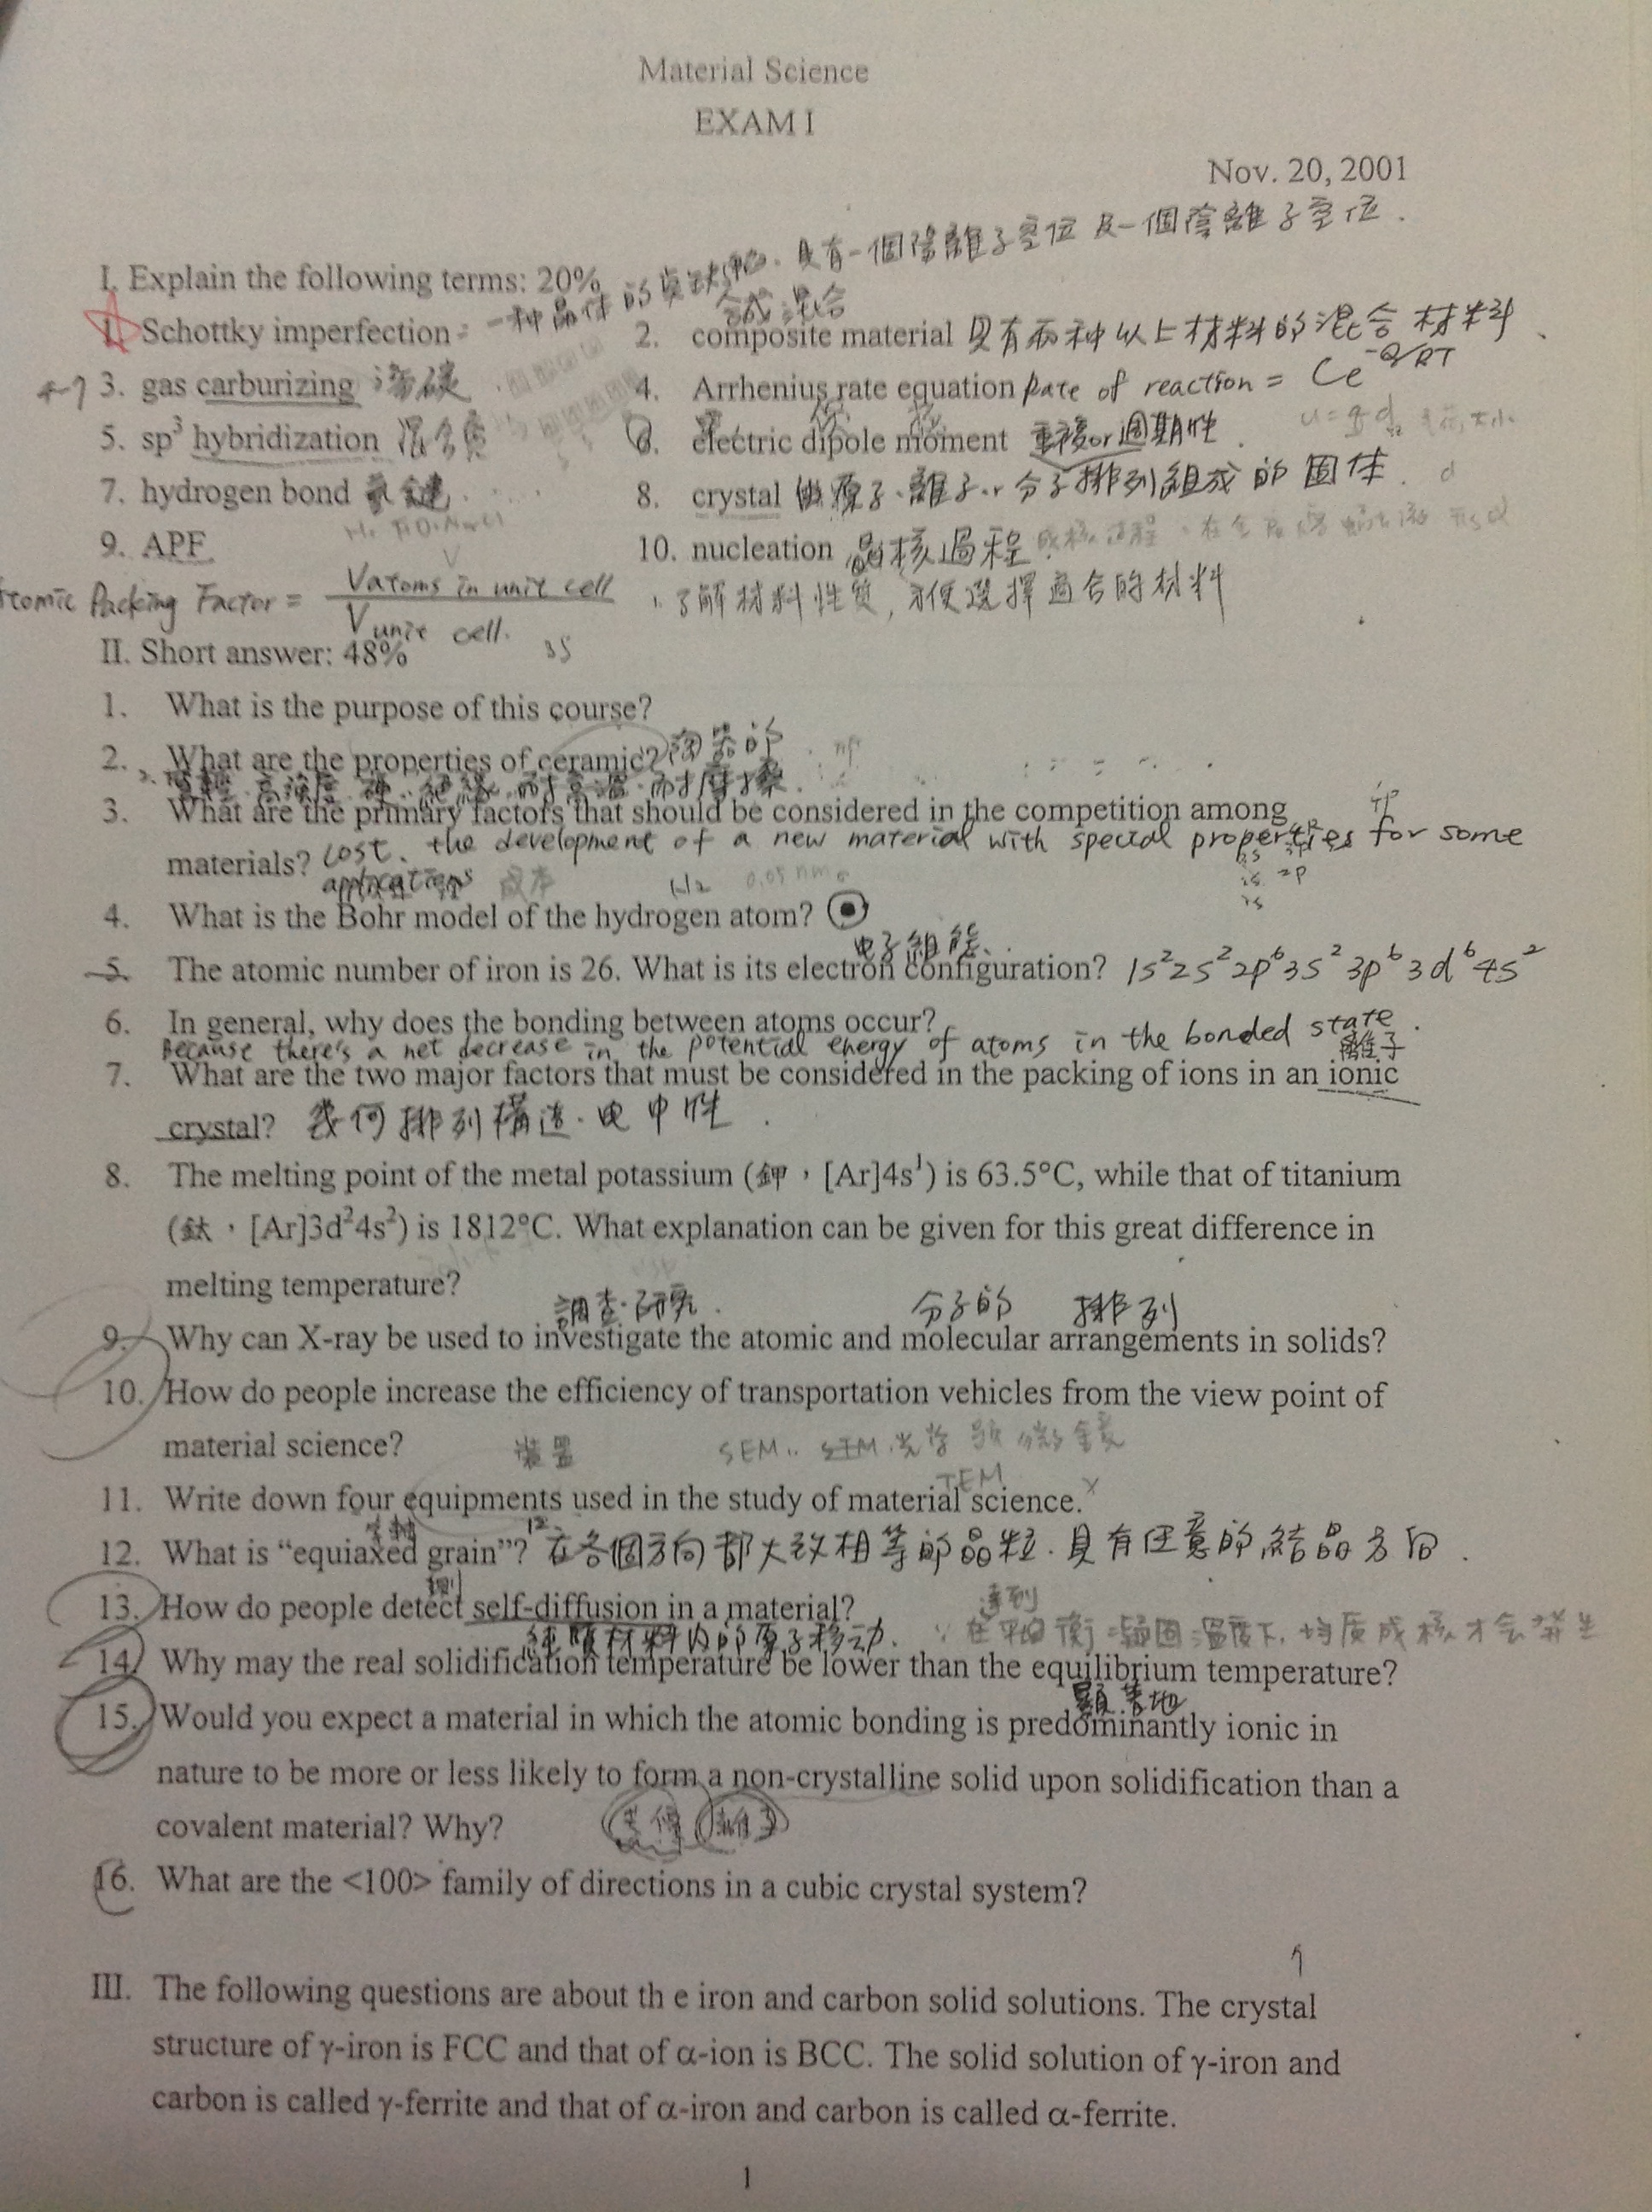 Material Science
EXAM I
Nov. 20, 2001
具有一個陰離子空位及一個陰離子空位.
I. Explain the following terms: 20%
一種晶体的
合成 混合
1. Schottky imperfection
2. composite material 具有兩种以上材料的混合材料
3. gas carburizing 滲碳
4. Arrhenius rate equation Rate of reaction = Ce^-Q/RT
5. sp³ hybridization
6. electric dipole moment 重複or週期性
7. hydrogen bond 氫鍵
8. crystal 由原子.離子or分子排列組成的固体.
9. APF
10. nucleation 晶核過程
Atomic Packing Factor = V atoms in unit cell / V unit cell.
了解材料性質,方便選擇適合的材料
II. Short answer: 48%
1. What is the purpose of this course?
2. What are the properties of ceramic? 陶器的
耐高溫.耐摩擦.
3. What are the primary factors that should be considered in the competition among
materials? cost. the development of a new material with special properties for some
applications 成本
H₂ 0.05 nm
4. What is the Bohr model of the hydrogen atom?
电子組態
5. The atomic number of iron is 26. What is its electron configuration? 1s²2s²2p⁶3s²3p⁶3d⁶4s²
6. In general, why does the bonding between atoms occur?
Because there's a net decrease in the potential energy of atoms in the bonded state.
離子
7. What are the two major factors that must be considered in the packing of ions in an ionic
crystal? 幾何排列構造.电中性.
8. The melting point of the metal potassium (鉀，[Ar]4s¹) is 63.5°C, while that of titanium
(鈦，[Ar]3d²4s²) is 1812°C. What explanation can be given for this great difference in
melting temperature?
調查.研究. 分子的 排列
9. Why can X-ray be used to investigate the atomic and molecular arrangements in solids?
10. How do people increase the efficiency of transportation vehicles from the view point of
material science?
裝置 SEM.. STM.光学顯微鏡
TEM
11. Write down four equipments used in the study of material science.
12. What is “equiaxed grain”? 在各個方向都大致相等的晶粒.具有任意的結晶方向.
測
13. How do people detect self-diffusion in a material?
純質材料內的原子移动. 達到
∵在平衡凝固溫度下,均質成核才会發生
14. Why may the real solidification temperature be lower than the equilibrium temperature?
顯著地
15. Would you expect a material in which the atomic bonding is predominantly ionic in
nature to be more or less likely to form a non-crystalline solid upon solidification than a
covalent material? Why?
16. What are the <100> family of directions in a cubic crystal system?
III. The following questions are about th e iron and carbon solid solutions. The crystal
structure of γ-iron is FCC and that of α-ion is BCC. The solid solution of γ-iron and
carbon is called γ-ferrite and that of α-iron and carbon is called α-ferrite.
1